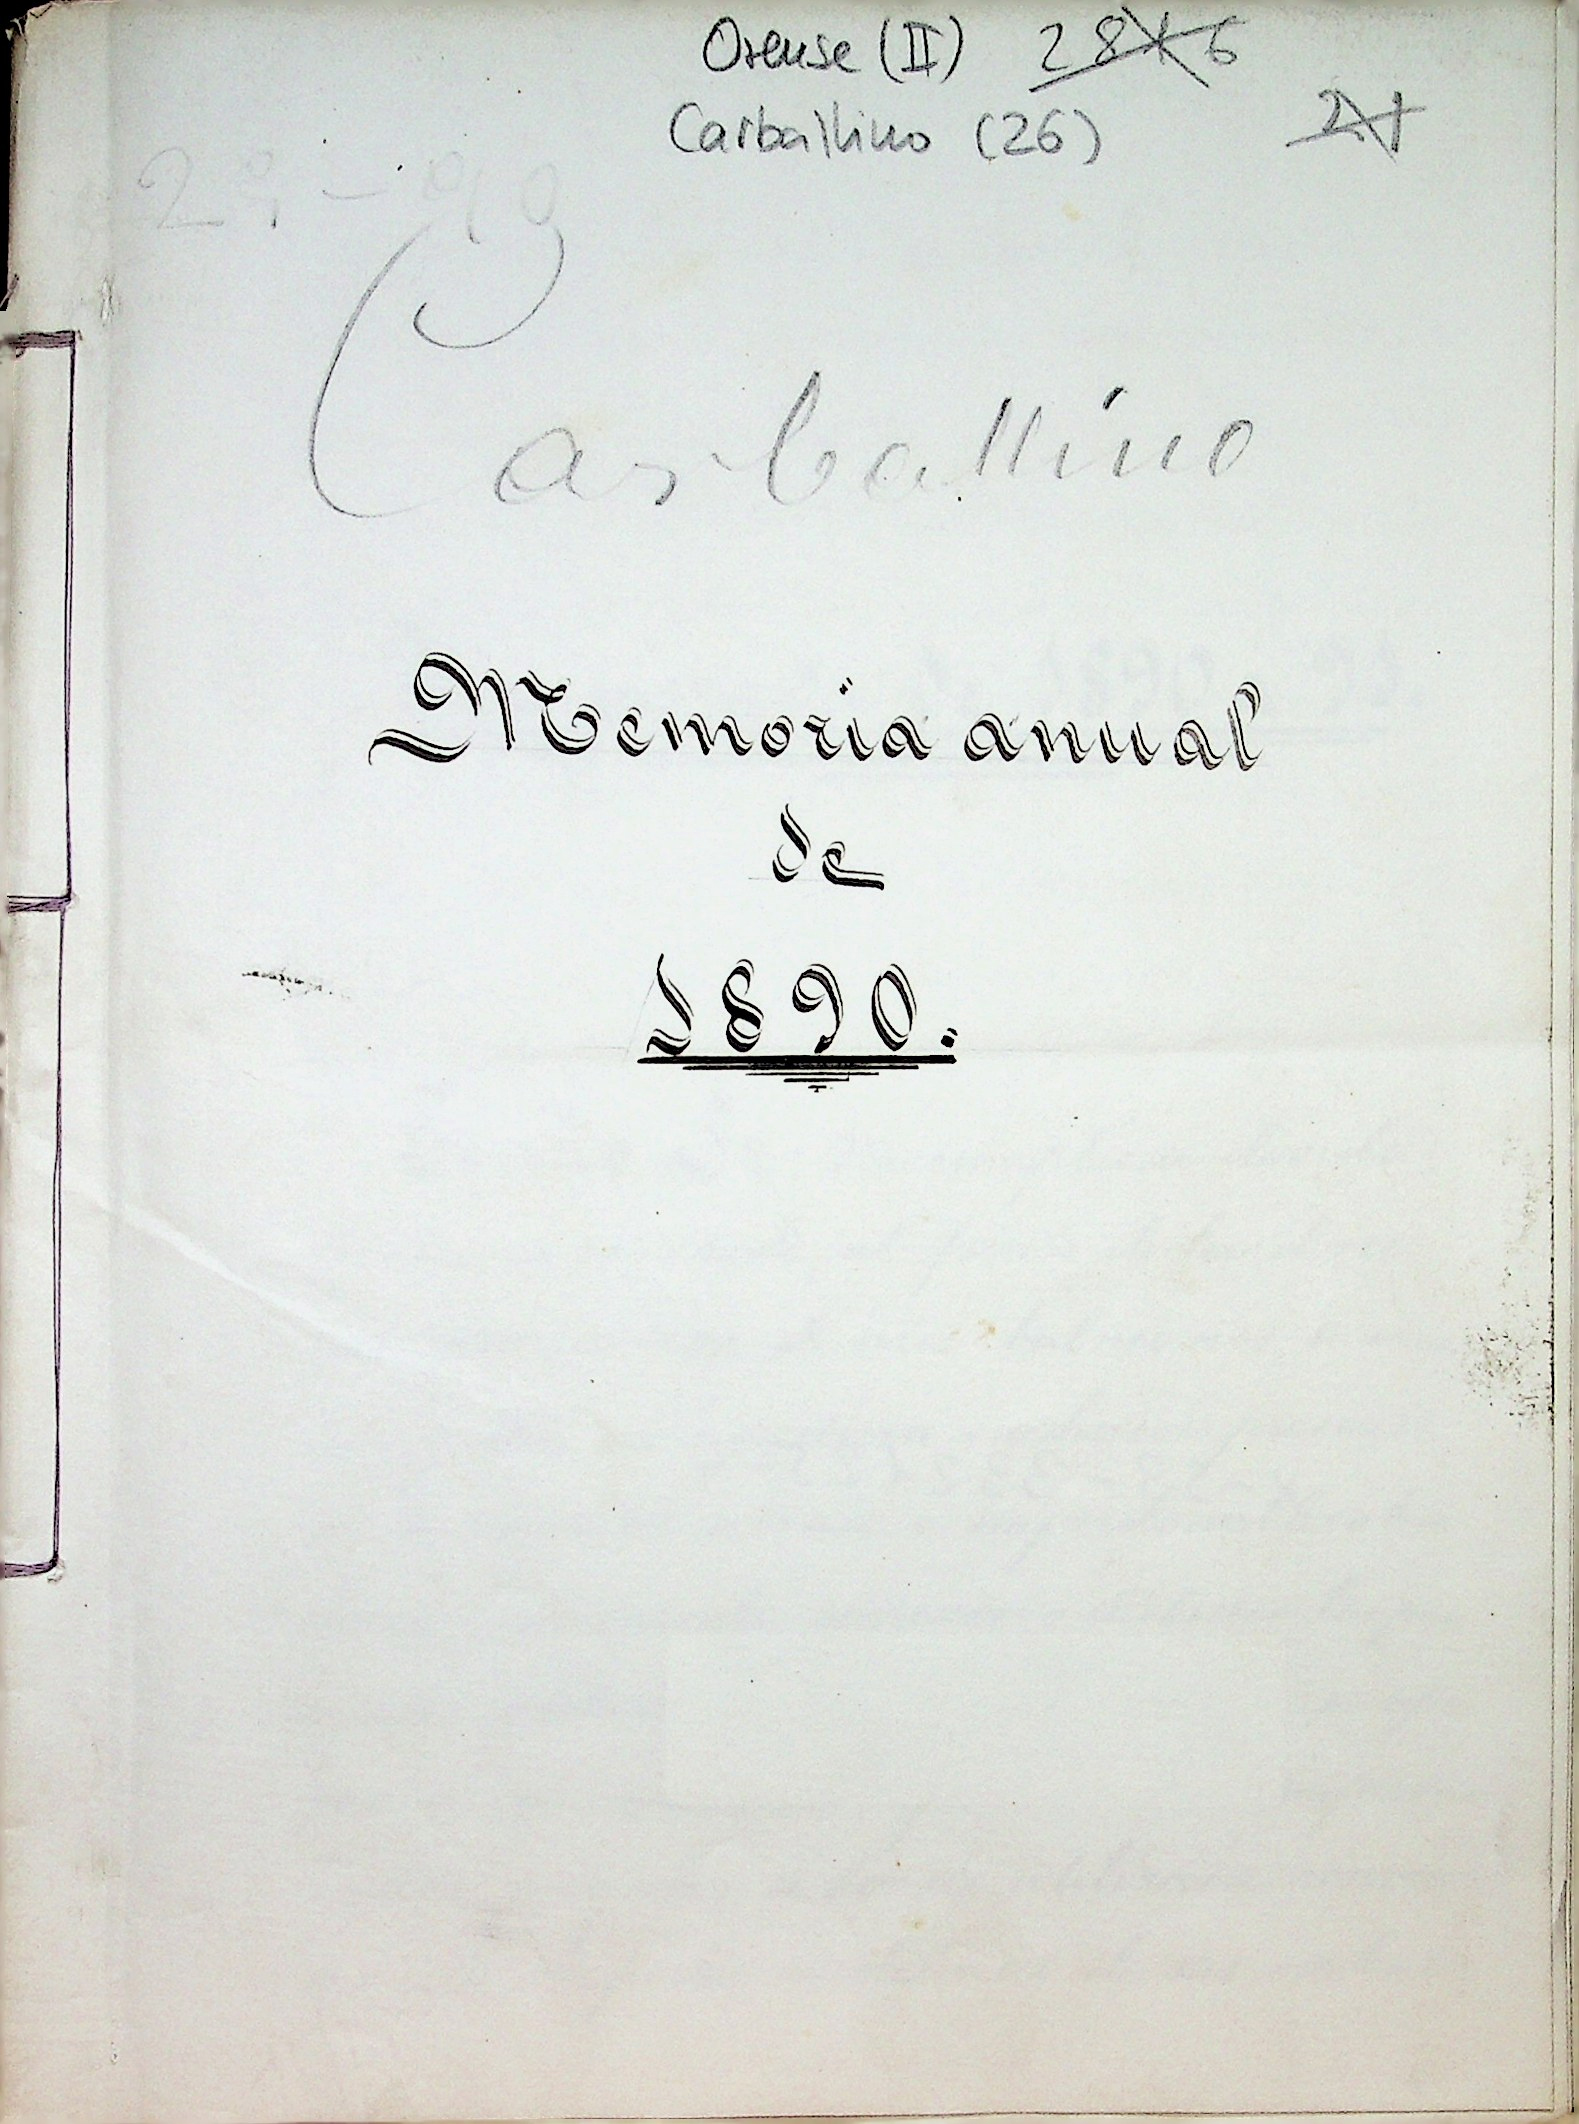 Orense (II) 2816
Carballino (26) 21
Carballino
Memoria anual
de
1890.